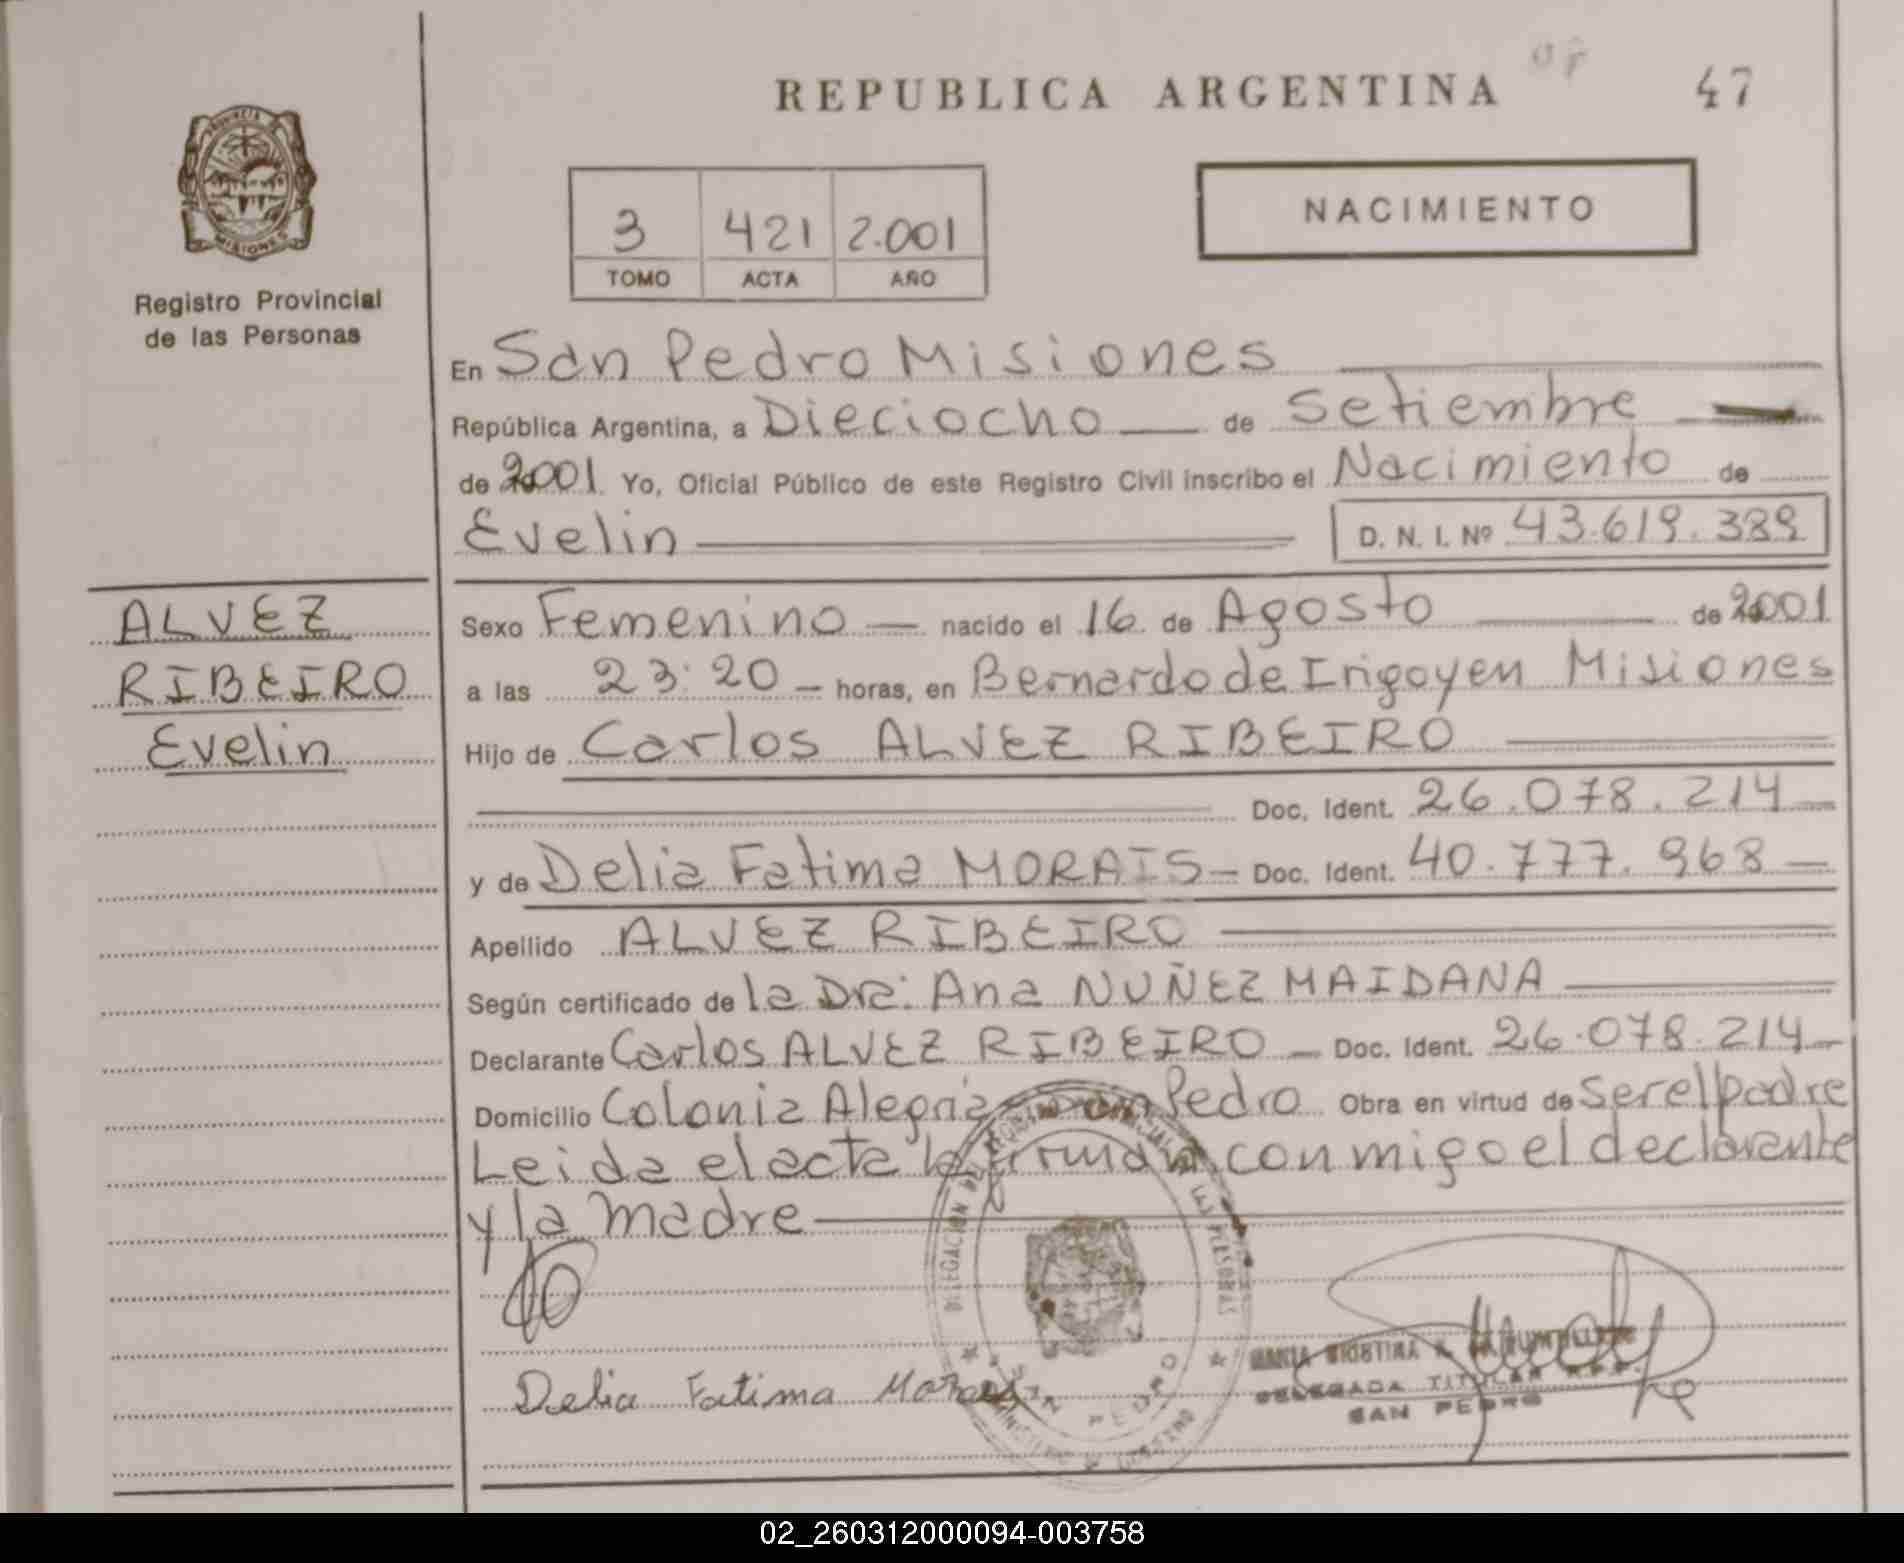 REPUBLICA ARGENTINA
47
PROVINCIA DE
MISIONES
Registro Provincial
de las Personas
3 421 2.001
TOMO ACTA AÑO
NACIMIENTO
En San Pedro Misiones
República Argentina, a Dieciocho de Setiembre
de 2001 Yo, Oficial Público de este Registro Civil inscribo el Nacimiento de
Evelin D. N. I. Nº 43.619.389
ALVEZ
RIBEIRO
Evelin
Sexo Femenino nacido el 16 de Agosto de 2001
a las 23:20 horas, en Bernardo de Irigoyen Misiones
Hijo de Carlos ALVEZ RIBEIRO
Doc. Ident. 26.078.214
y de Delia Fatima MORAIS Doc. Ident. 40.777.968
Apellido ALVEZ RIBEIRO
Según certificado de la Dra: Ana NUÑEZ MAIDANA
Declarante Carlos ALVEZ RIBEIRO Doc. Ident. 26.078.214
Domicilio Colonia Alegria San Pedro Obra en virtud de Ser el padre
Leida el acta la firman con migo el declarante
y la madre
Delia Fatima Morais
DELEGACION DEL REGISTRO PROVINCIAL DE LAS PERSONAS
SAN PEDRO
MARIA CRISTINA
DELEGADA TITULAR R.P.P.
SAN PEDRO
02_260312000094-003758